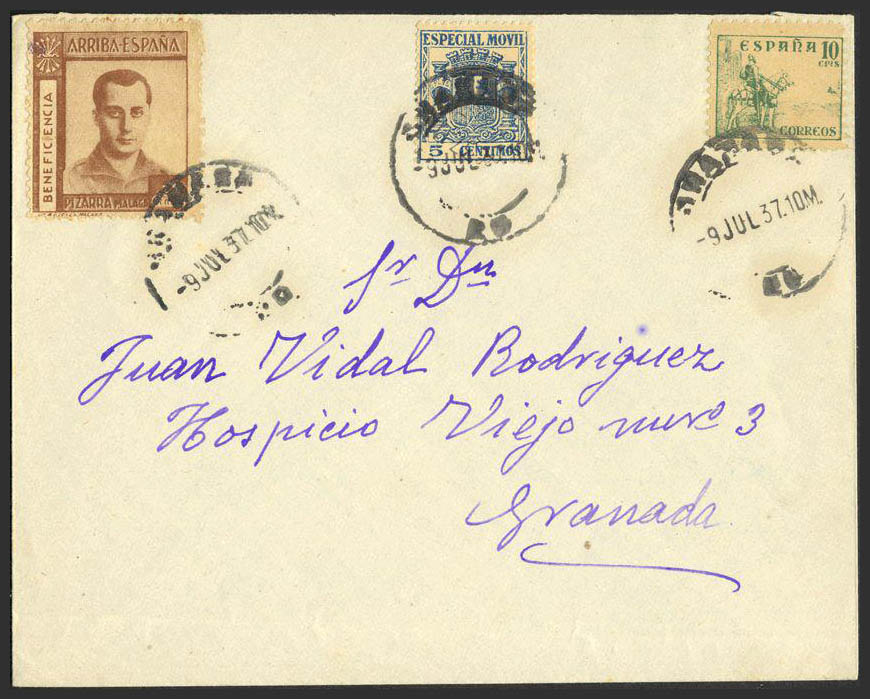 ARRIBA-ESPAÑA
BENEFICIENCIA
PIZARRA MALAGA
ESPECIAL MOVIL
5 CENTIMOS
ESPAÑA 10
CTS
CORREOS
GRANADA
-9JUL37.10M.
GRANADA
-9JUL
GRANADA
-9JUL37.10M.
Sr Dn
Juan Vidal Rodriguez
Hospicio Viejo numº 3
Granada